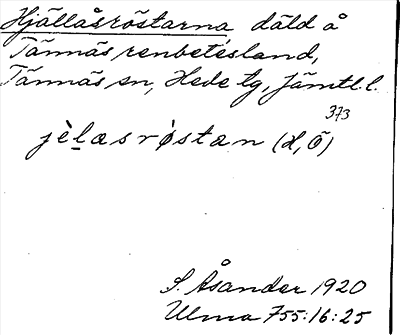 Hjällåsröstarna däld å
Tännäs renbetesland,
Tännäs sn, Hede tg, Jämtl. l.
373
jèlasròstan (H, Ö)
S. Åsander 1920
Ulma 755:16:25